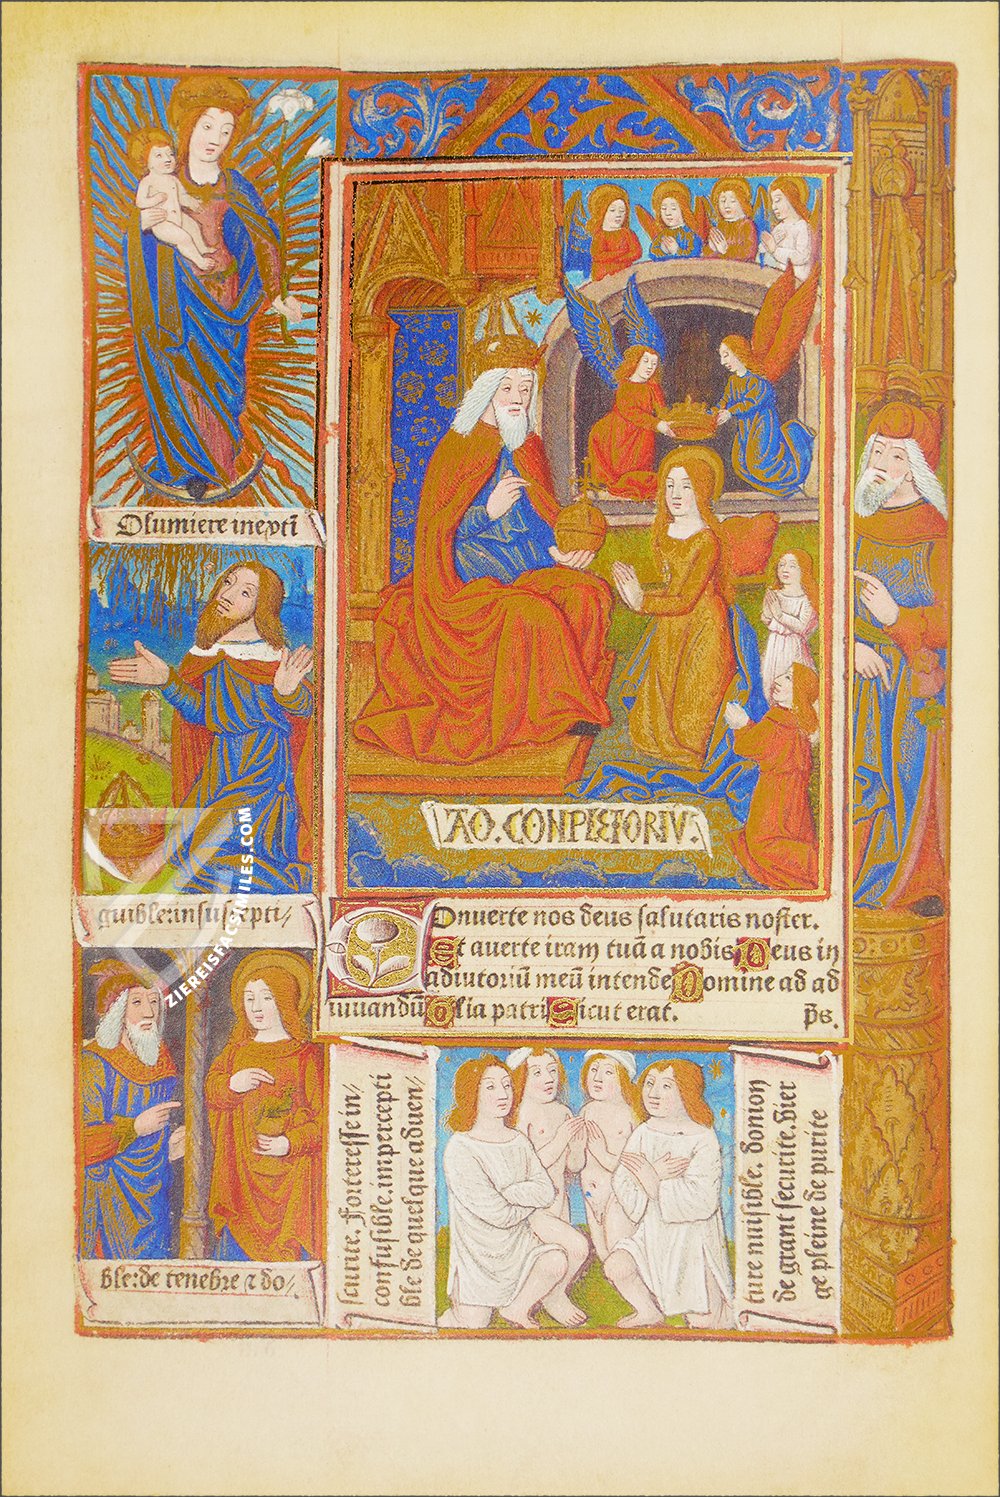 O lumiere inextī
guible: insuscepti/
ble: de tenebre ⁊ do/
AD. CONPLETORIV:
Onuerte nos deus salutaris noster.
Et auerte iram tuā a nobis Deus in
adiutoriū meū intende Domine ad ad
iuuandū Glia patri Sicut erat. p̄s.
scurite. Forteresse in/
confusible. impercepti
ble de quelque aduen/
ture nuisible. donion
de grant securite. vier
ge pleine de purite
ZIEREISFACSIMILES.COM